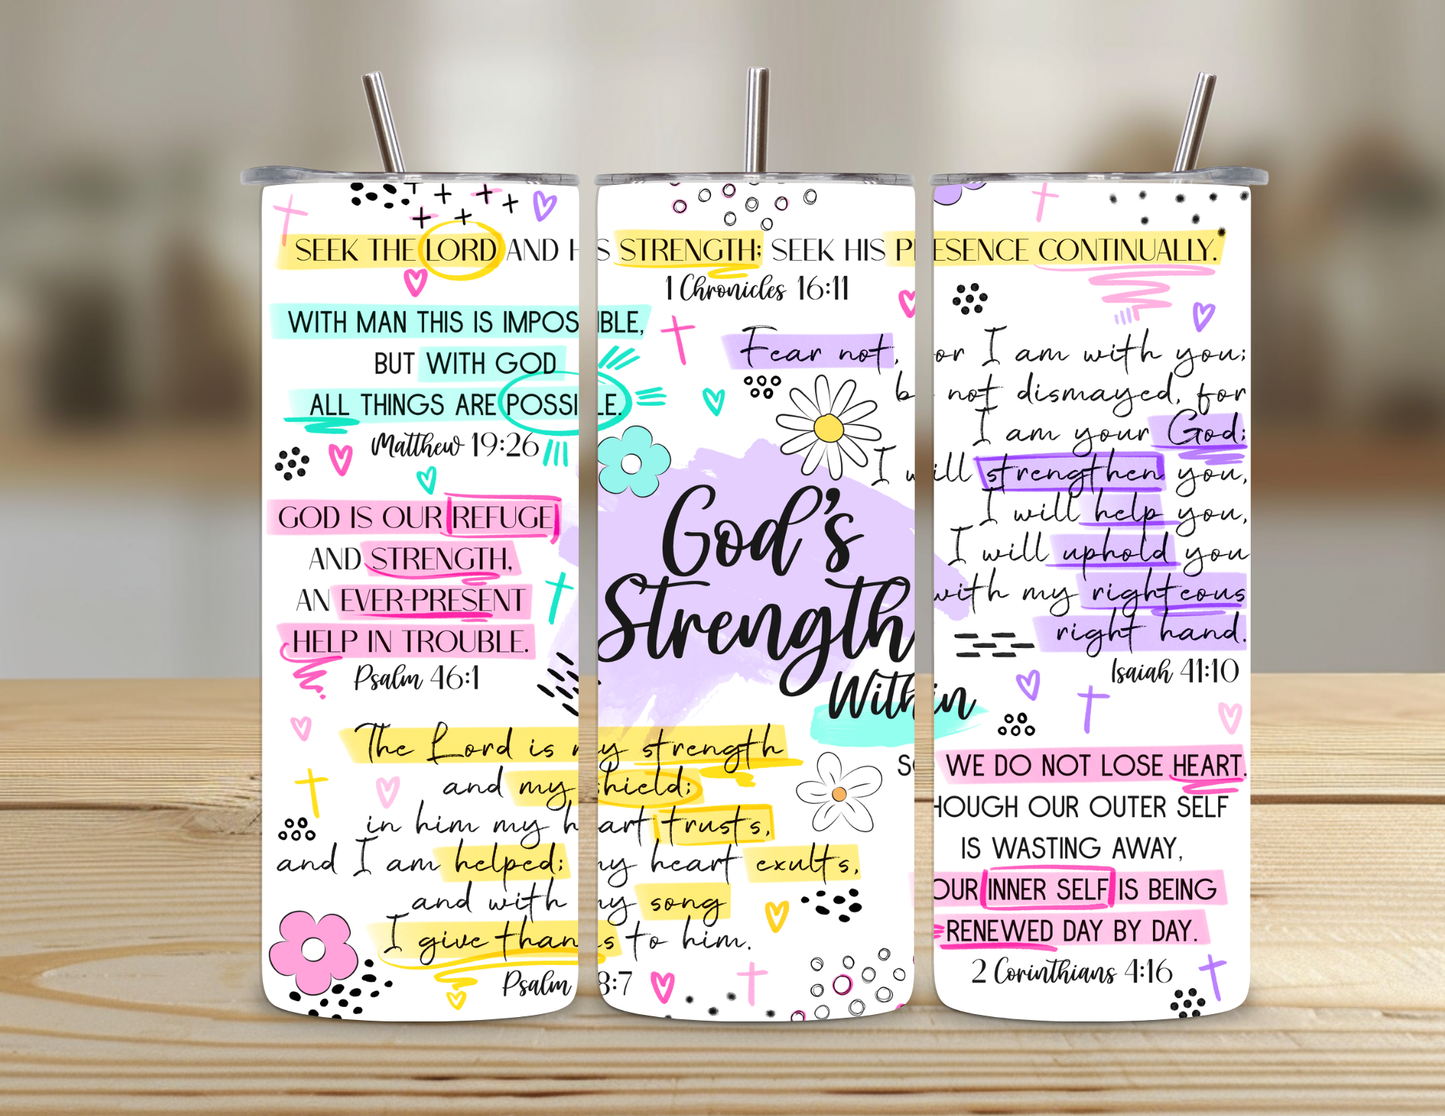 SEEK THE LORD AND HIS STRENGTH; SEEK HIS PRESENCE CONTINUALLY.
1 Chronicles 16:11
WITH MAN THIS IS IMPOSSIBLE,
BUT WITH GOD
ALL THINGS ARE POSSIBLE.
Matthew 19:26
GOD IS OUR REFUGE
AND STRENGTH,
AN EVER-PRESENT
HELP IN TROUBLE.
Psalm 46:1
The Lord is my strength
and my shield;
in him my heart trusts,
and I am helped;
my heart exults,
and with my song
I give thanks to him.
Psalm 8:7
God's
Strength
Within
Fear not, for I am with you;
be not dismayed, for
I am your God;
I will strengthen you,
I will help you,
I will uphold you
with my righteous
right hand.
Isaiah 41:10
SO WE DO NOT LOSE HEART.
THOUGH OUR OUTER SELF
IS WASTING AWAY,
OUR INNER SELF IS BEING
RENEWED DAY BY DAY.
2 Corinthians 4:16